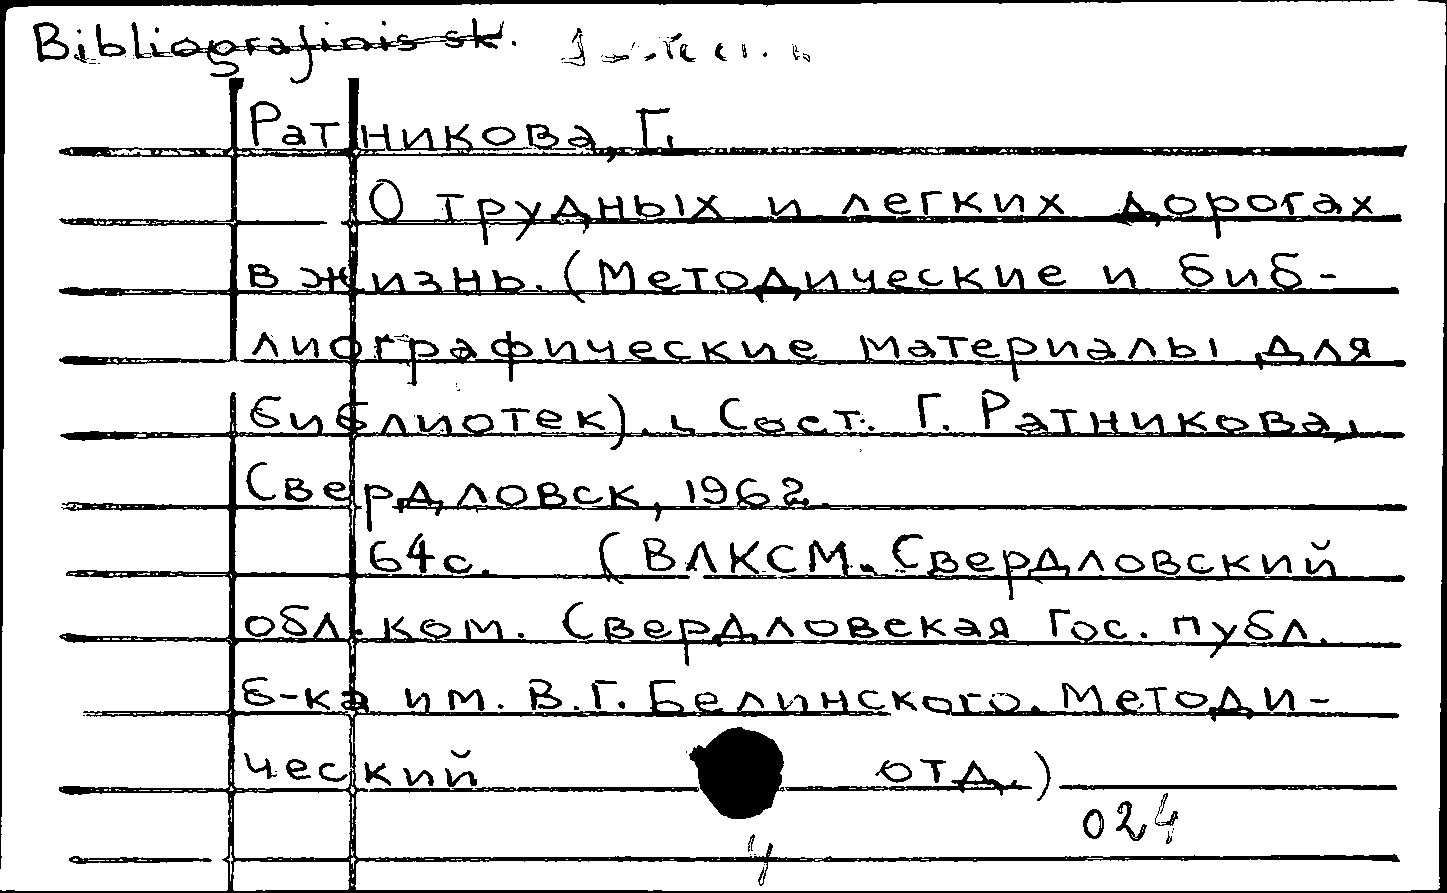 Bibliografinis sk.
Ратникова, Г.
О трудных и легких дорогах
в жизнь. (Методические и биб-
лиографические материалы для
библиотек). Сост. Г. Ратникова,
Свердловск, 1962.
64с. (ВЛКСМ. Свердловский
обл. ком. Свердловская Гос. публ.
б-ка им. В.Г. Белинского. Методи-
ческий отд.)
024
4